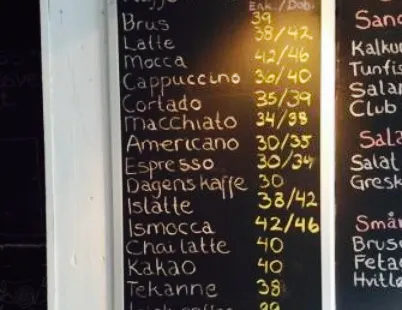 Enk./Dob.
Brus 39
Latte 38/42
Mocca 42/46
Cappuccino 36/40
Cortado 35/39
Macchiato 34/38
Americano 30/35
Espresso 30/34
Dagens kaffe 30
Islatte 38/42
Ismocca 42/46
Chai latte 40
Kakao 40
Tekanne 38
39
Sand
Kalku
Tunfis
Salam
Club
Sala
Salat
Gresk
Smår
Brus
Feta
Hvitl